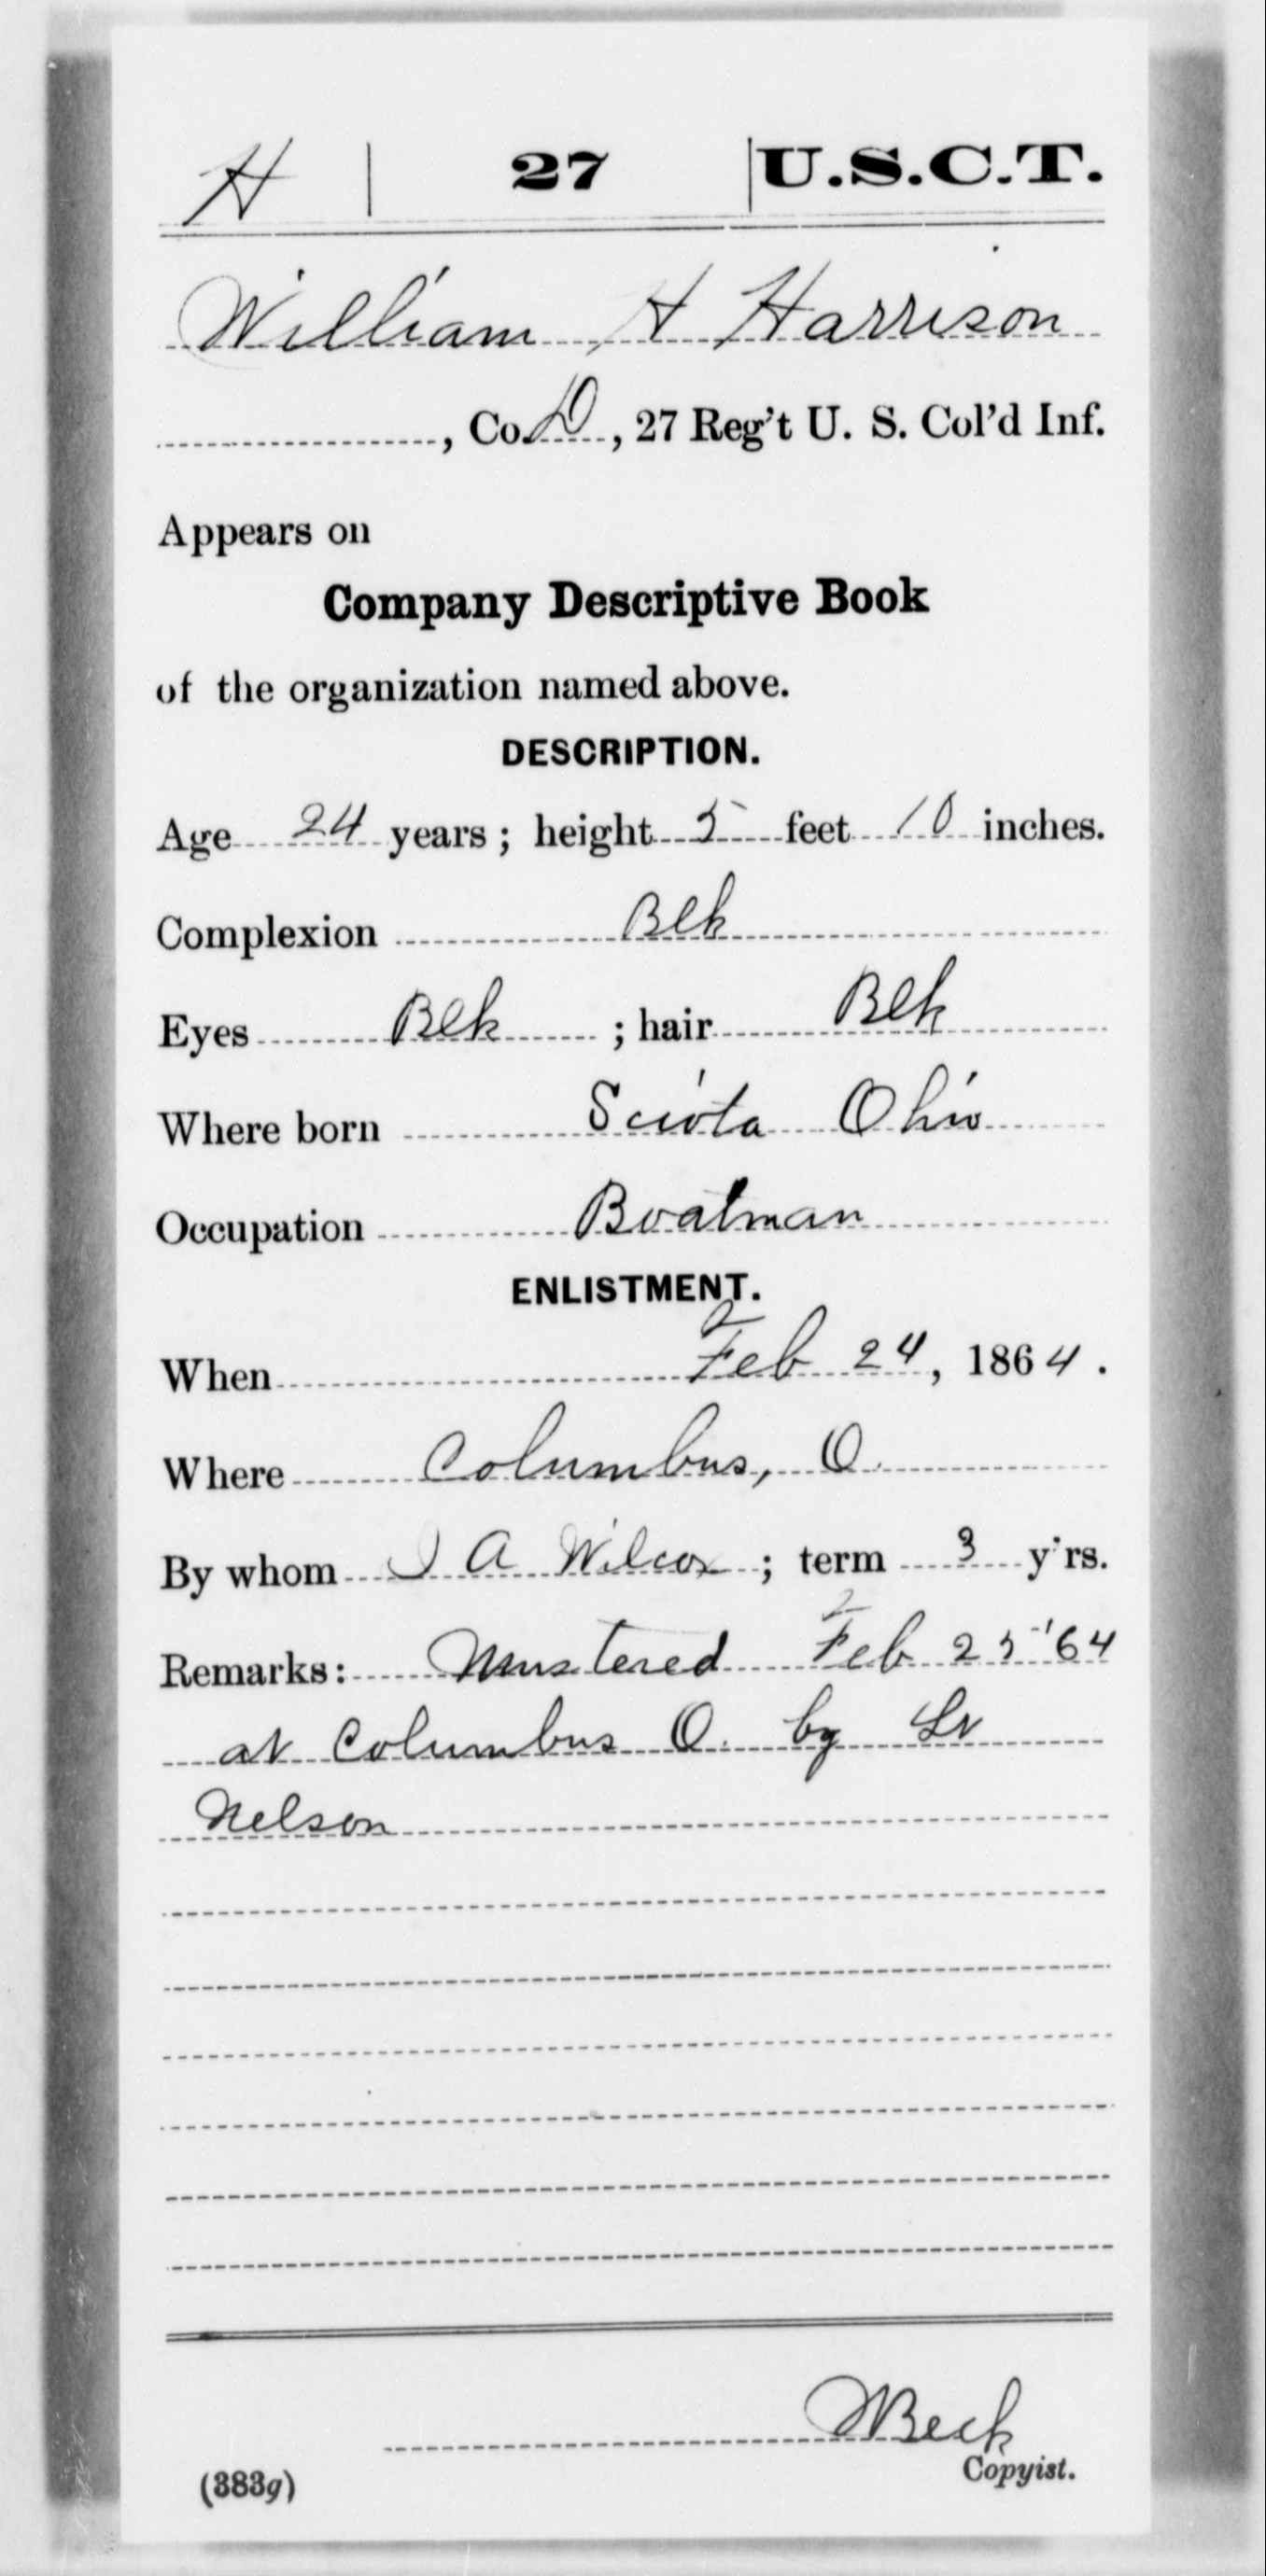 H | 27 | U.S.C.T.
William H Harrison
, Co. D, 27 Reg't U. S. Col'd Inf.
Appears on
Company Descriptive Book
of the organization named above.
DESCRIPTION.
Age 24 years; height 5 feet 10 inches.
Complexion Blk
Eyes Blk; hair Blk
Where born Sciota Ohio
Occupation Boatman
ENLISTMENT.
When Feb 24, 1864.
Where Columbus, O.
By whom J A Wilcox; term 3 y'rs.
Remarks: Mustered Feb 25 '64
at Columbus O. by Lt
Nelson
Beck
Copyist.
(383g)